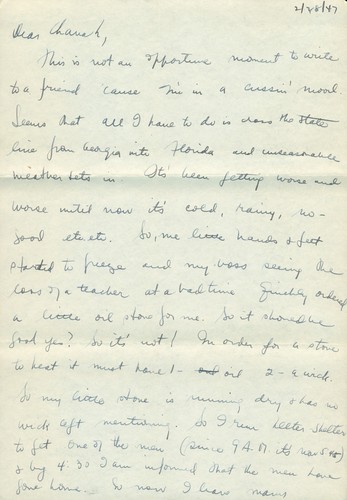 2/28/47
Dear Chanch,
This is not an opportune moment to write
to a friend 'cause I'm in a cussin' mood.
Seems that all I have to do is cross the state
line from Georgia into Florida and unseasonable
weather sets in. It's been getting worse and
worse until now it's cold, rainy, no-
good etc etc. So, me little hands & feet
started to freeze and my boss seeing the
loss of a teacher at a bad time finally ordered
a little oil stove for me. So it should be
good yes? So it's not! In order for a stove
to heat it must have 1- oil 2- a wick.
So my little stove is running dry & has no
wick left mentioning. So I run helter skelter
to get one of the men (since 9 A.M. it's now 5 )
& by 4:30 I am informed that the men have
gone home. So now I have